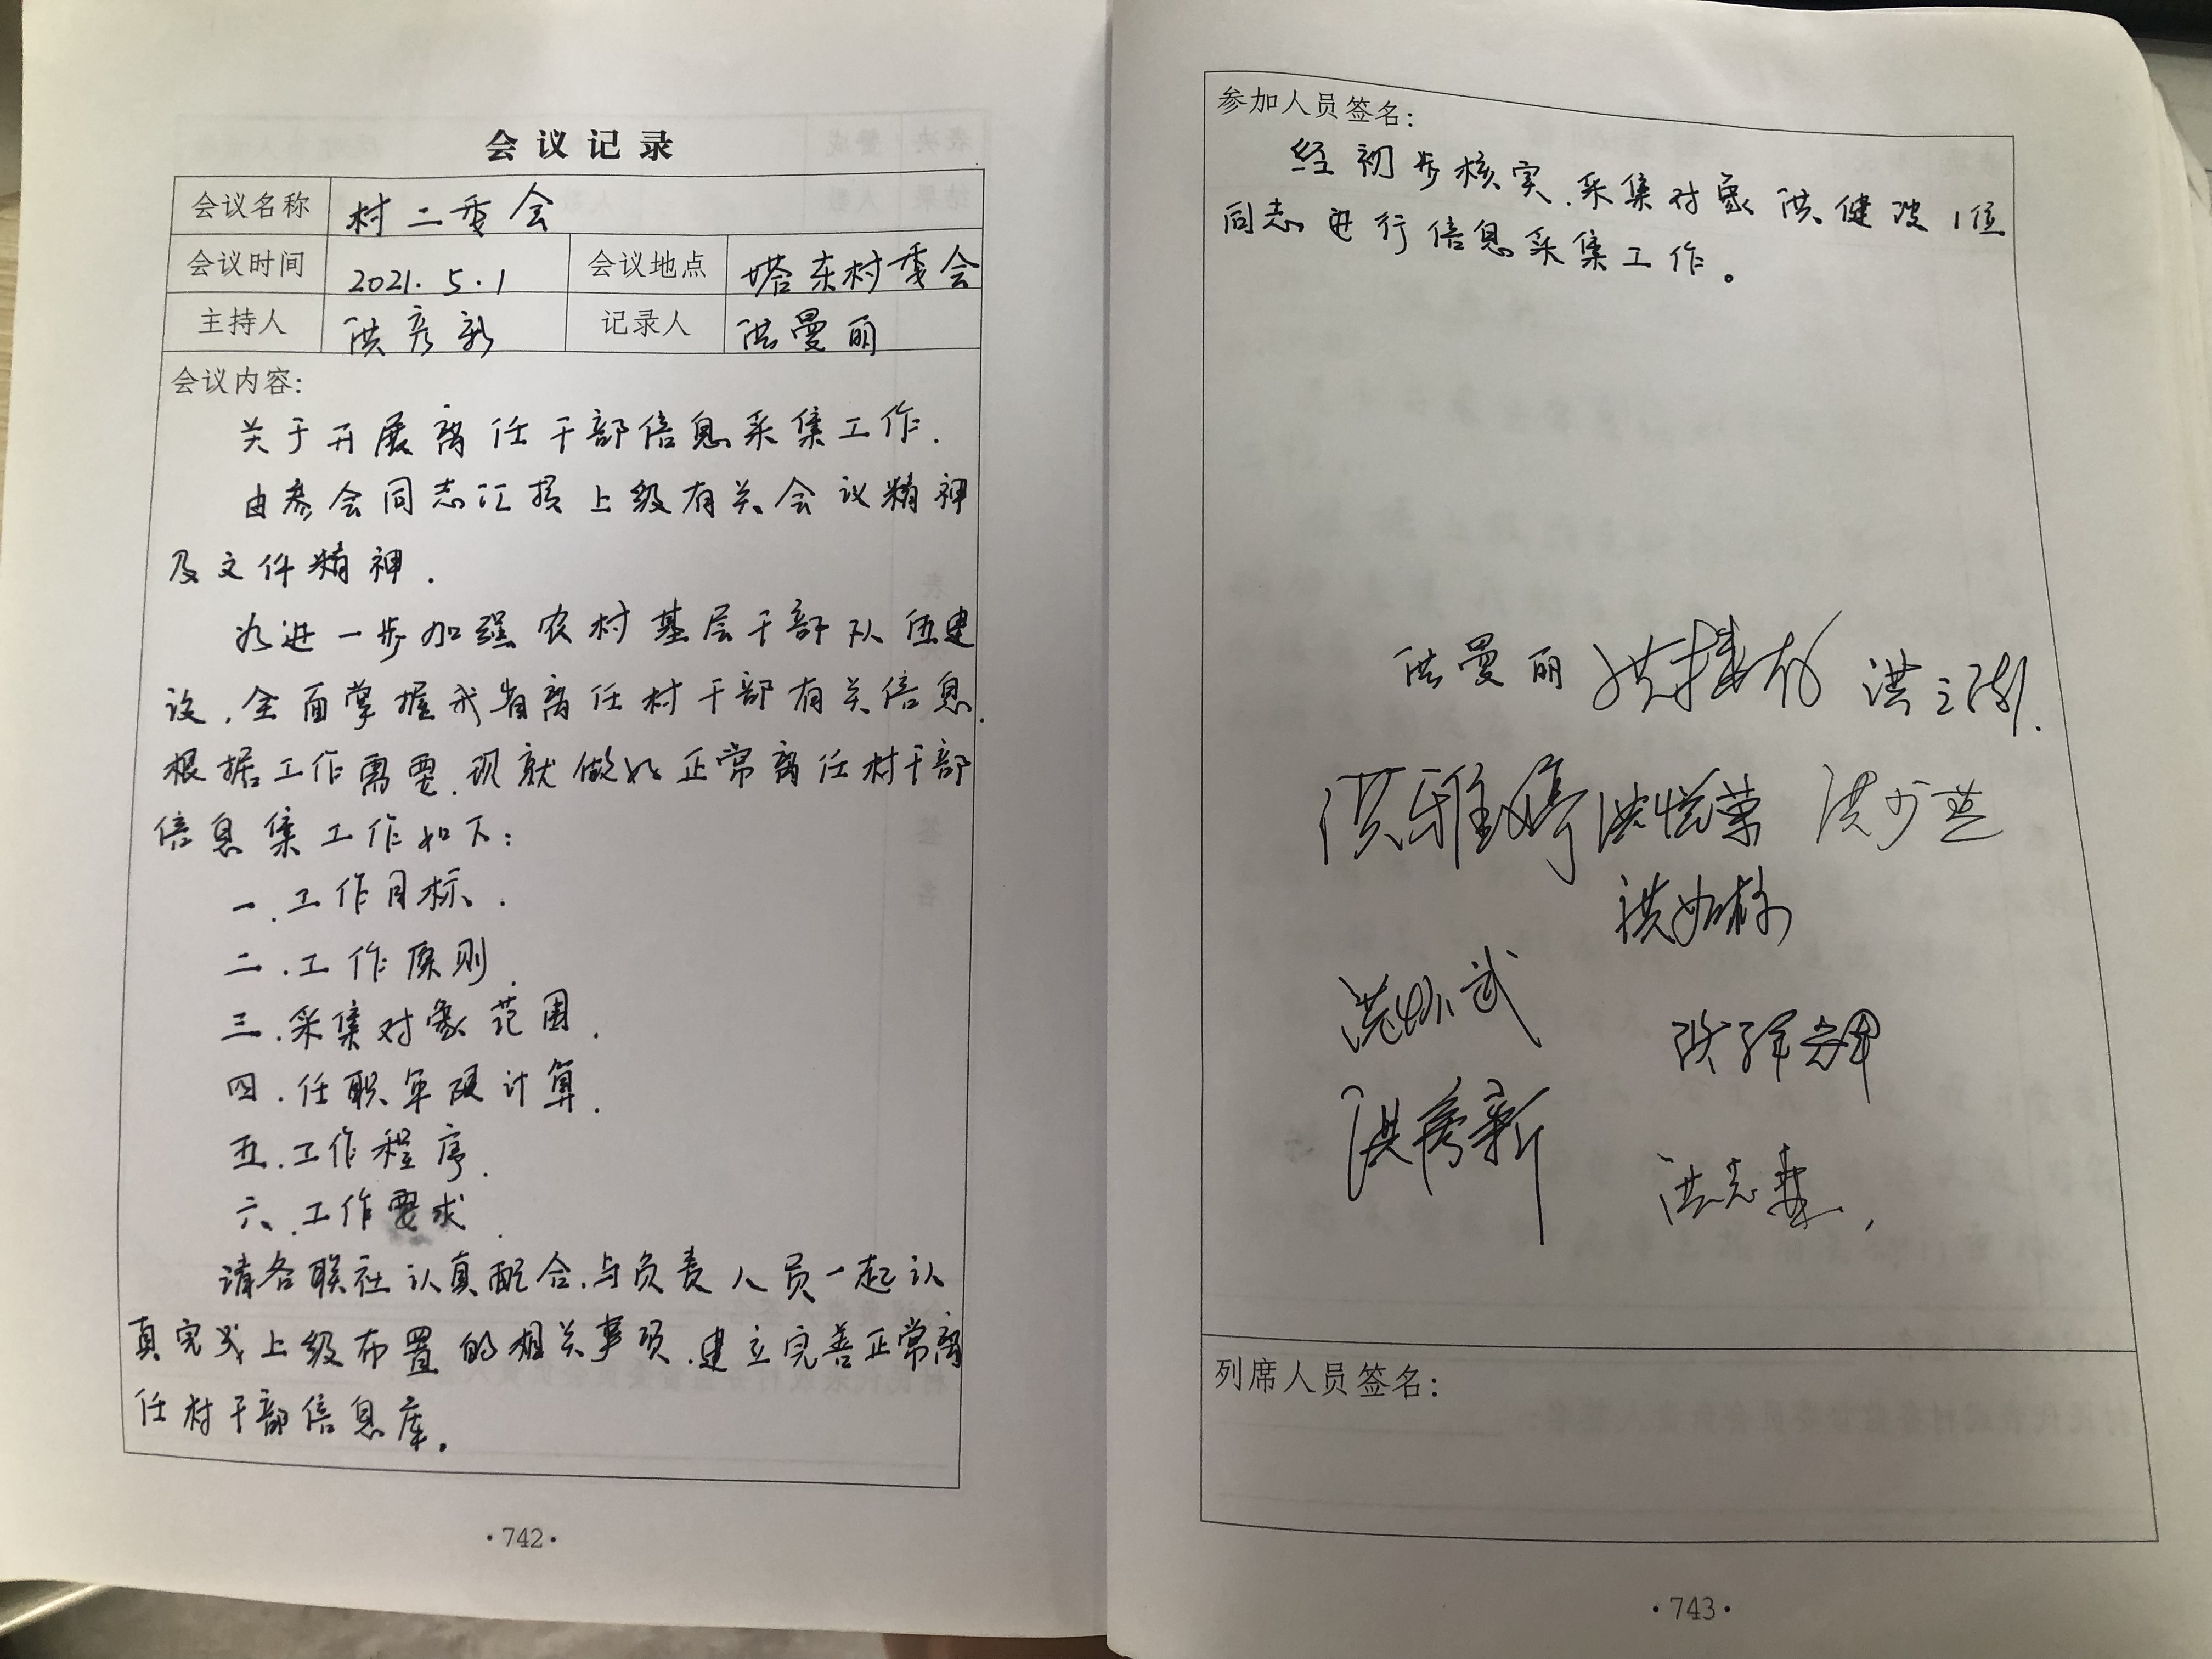 会议记录
会议名称 村二委会
会议时间 2021.5.1 会议地点 塔东村委会
主持人 洪彦新 记录人 洪曼丽
会议内容:
关于开展离任干部信息采集工作.
由参会同志汇报上级有关会议精神
及文件精神.
为进一步加强农村基层干部队伍建
设,全面掌握我省离任村干部有关信息.
根据工作需要,现就做好正常离任村干部
信息集工作如下:
一.工作目标.
二.工作原则.
三.采集对象范围.
四.任职年限计算.
五.工作程序.
六.工作要求.
请各联社认真配合,与负责人员一起认
真完成上级布置的相关事项,建立完善正常离
任村干部信息库。
·742·
参加人员签名:
经初步核实,采集对象洪健波1位
同志进行信息采集工作。
洪曼丽
洪雅婷 洪悦荣 洪少芝
洪彦新
列席人员签名:
·743·